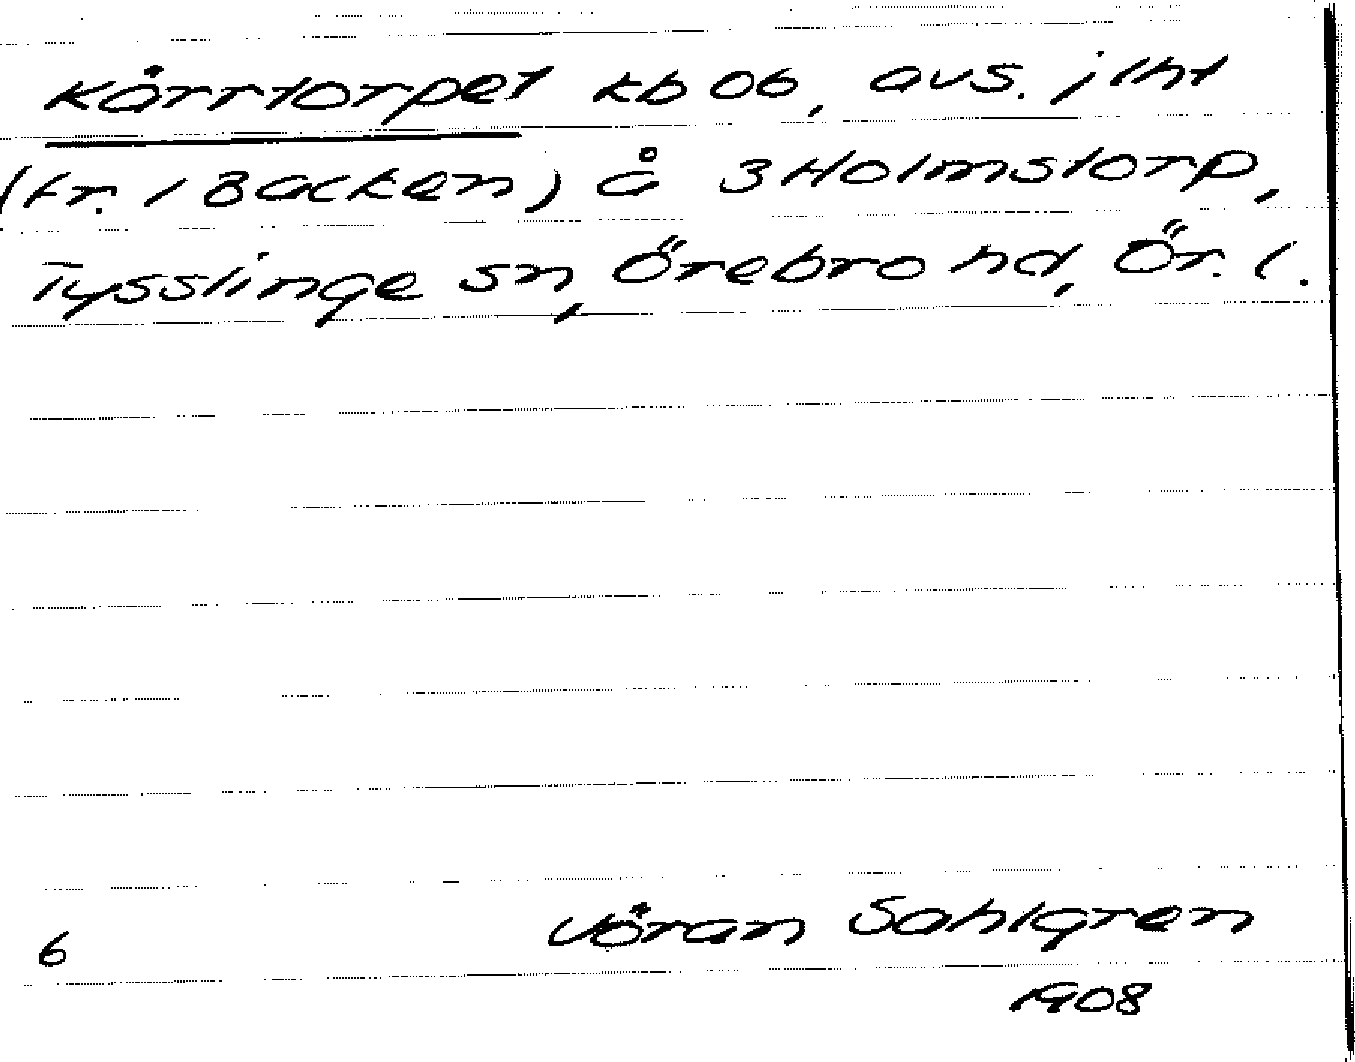 Kärrtorpet kb 06, avs. j lht
(fr. 1 Backen) å 3 Holmstorp,
Tysslinge sn, Örebro hd, Ör. l.
6
Jöran Sahlgren
1908